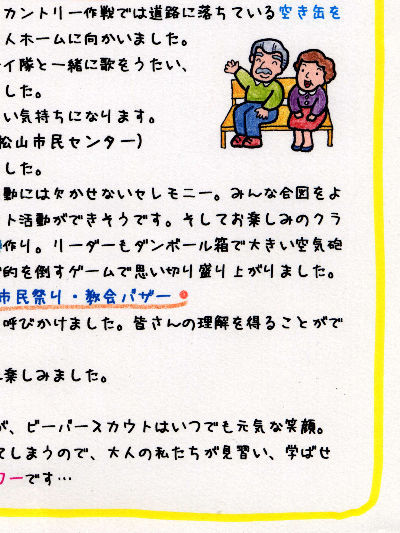 カントリー作戦では道路に落ちている空き缶を
人ホームに向かいました。
イ隊と一緒に歌をうたい、
した。
い気持ちになります。
松山市民センター)
した。
動には欠かせないセレモニー。みんな合図をよ
ト活動ができそうです。そしてお楽しみのクラ
作り。リーダーもダンボール箱で大きい空気砲
的を倒すゲームで思い切り盛り上がりました。
市民祭り・教会バザー
呼びかけました。皆さんの理解を得ることがで
楽しみました。
が、ビーバースカウトはいつでも元気な笑顔。
てしまうので、大人の私たちが見習い、学ばせ
ワーです…